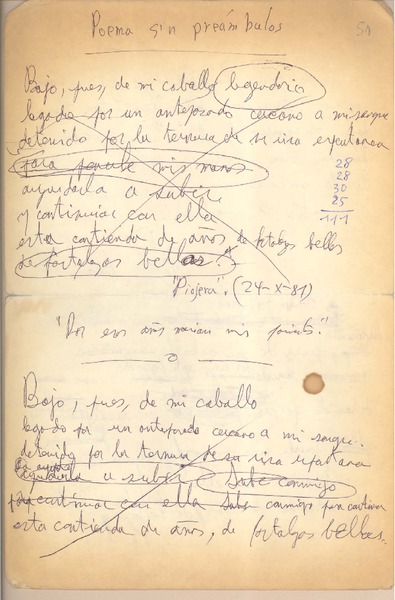 Poema sin preámbulos
50
Bajo, pues, de mi caballo legendario
legado por un antepasado cercano a mi sangre
detenido por la ternura de su risa espontánea
para ponerle mis manos
ayudarla a subir
y continuar con ella
esta contienda de años de fortalezas bellas
de fortalezas bellas."
28
28
30
25
111
"Piojera". (24-X-81)
"Por esos años morían mis parientes."
o
Bajo, pues, de mi caballo
legado por un antepasado cercano a mi sangre.
detenido por la ternura de su risa espontánea
la ayudo
ayudarla a subir sube conmigo
para continuar con ella sube conmigo para continuar
esta contienda de años, de fortalezas bellas.